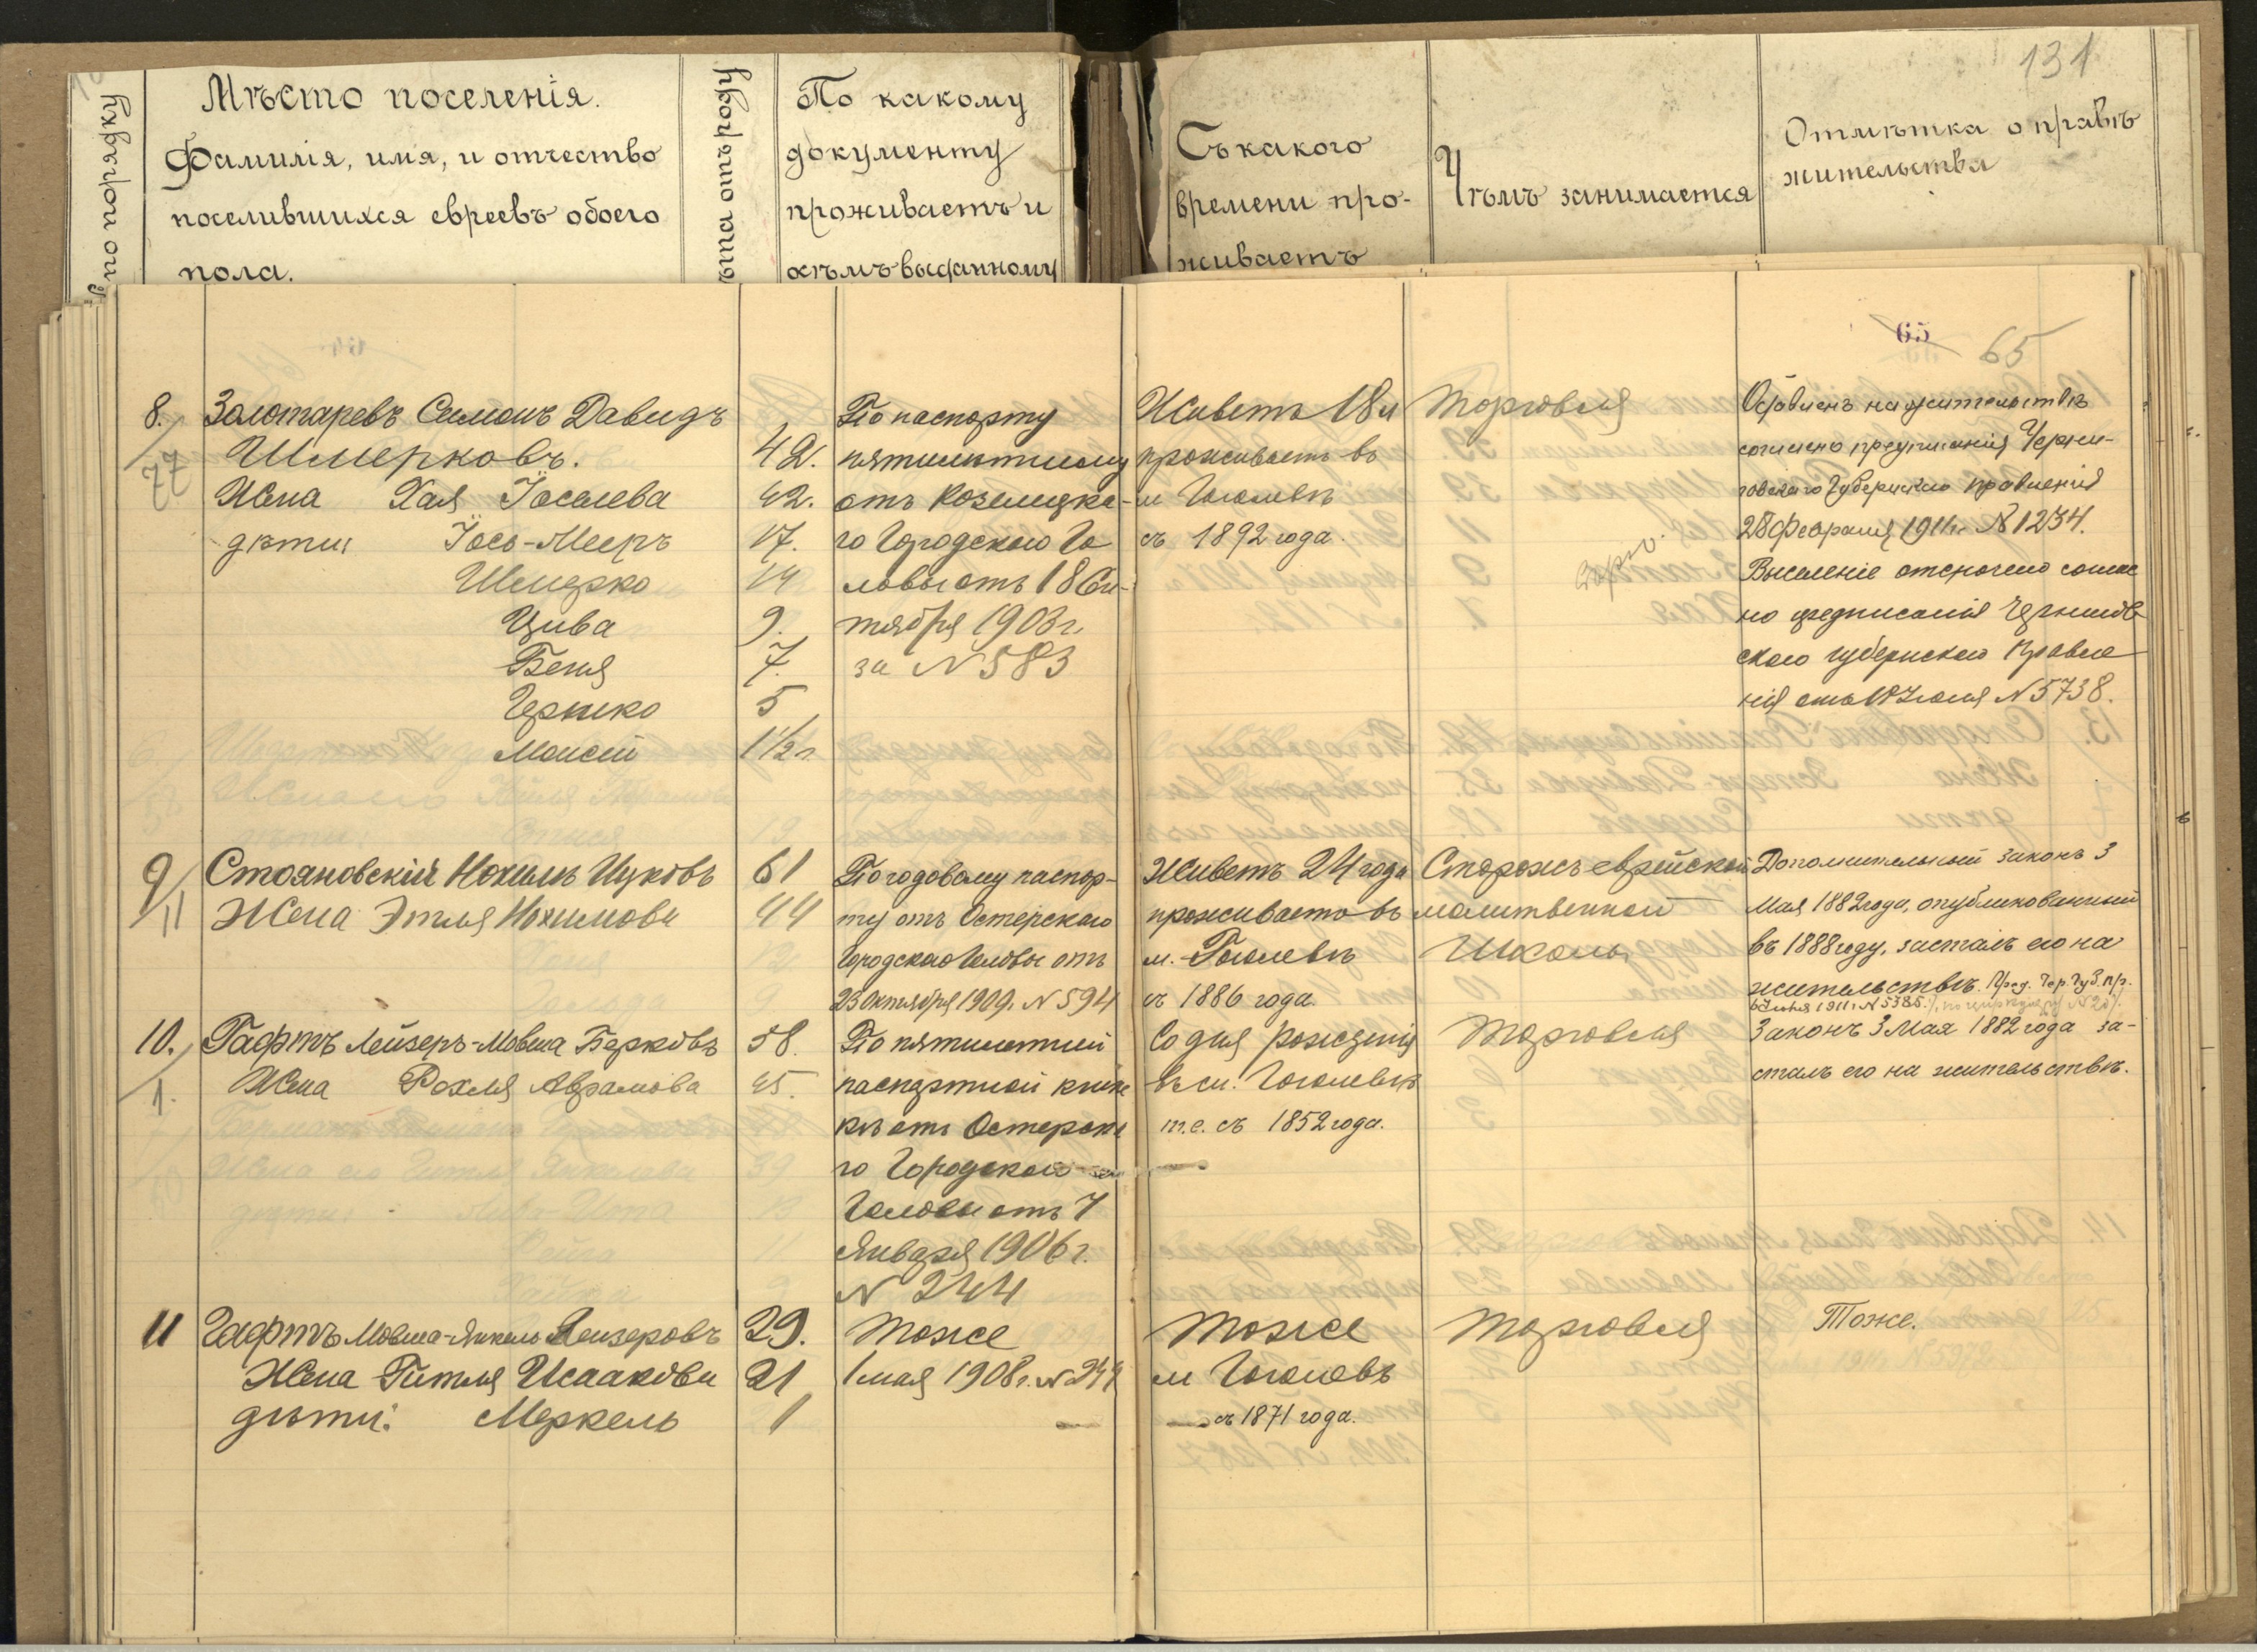 131
№ по порядку
Мѣсто поселенія.
Фамилія, имя, и отчество
поселившихся евреевъ обоего
пола.
лѣта отъ роду
По какому
документу
проживаетъ и
кѣмъ выданному
Съ какого
времени про-
живаетъ
Чѣмъ занимается
Отмѣтка о правѣ
жительства
65
65
8.
77
Золотаревъ Симонъ Давидъ
Шмерковъ. 42.
Жена Хая Іоселева 42.
дѣти Іось-Мееръ 17.
Шмерко 14
Цива 9.
Беня 7.
Гершко 5
Моисей 1 1/2 г
По паспорту
пятилѣтнему
отъ Козелецка-
го Городского Го
ловы отъ 18 Сен-
тября 1903 г.
за N 583
Живетъ 18 л
проживаетъ въ
м Гоголевѣ
съ 1892 года.
Торговля
Оставленъ на жительствѣ
согласно предписанія Черни-
говскаго Губернскаго Правленія
28 Февраля 1911 г. № 1234.
Выселеніе отсрочено соглас
но предписанія Чернигов
скаго губернскаго Правле
нія отъ 18 Іюля N 5738.
9
11
Стояновскій Нохимъ Ицковъ 61
Жена Этля Нохимова 44
По годовому паспор-
ту отъ Остерскаго
Городского Головы отъ
23 Октября 1909 г. N 594
Живетъ 24 года
проживаетъ въ
м. Гоголевѣ
съ 1886 года.
Сторожъ еврейской
молитвенной
Школы
Дополнительный законъ 3
Мая 1882 года, опубликованный
въ 1888 году, засталъ его на
жительствѣ. Пред. Чер. Губ. пр.
6 Іюня 1911 г. N 5385. по циркуляру N 20
10.
1.
Гафтъ Лейзеръ-Мовша Берковъ 58.
Жена Рохля Абрамова 45.
По пятилѣтней
паспортной книж
кѣ отъ Остерска
го Городского
Головы отъ 7
Января 1906 г.
N 244
Со дня рожденія
въ м. Гоголевѣ
т.е. съ 1852 года.
Торговля
Законъ 3 Мая 1882 года за-
сталъ его на жительствѣ.
11
Гафтъ Мовша-Янкель Лейзеровъ 29.
Жена Гитля Исаакова 21
дѣти: Меркель 1
Тоже
1 мая 1908 г. N 244
Тоже
м Гоголевъ
съ 1871 года.
Торговля
Тоже.